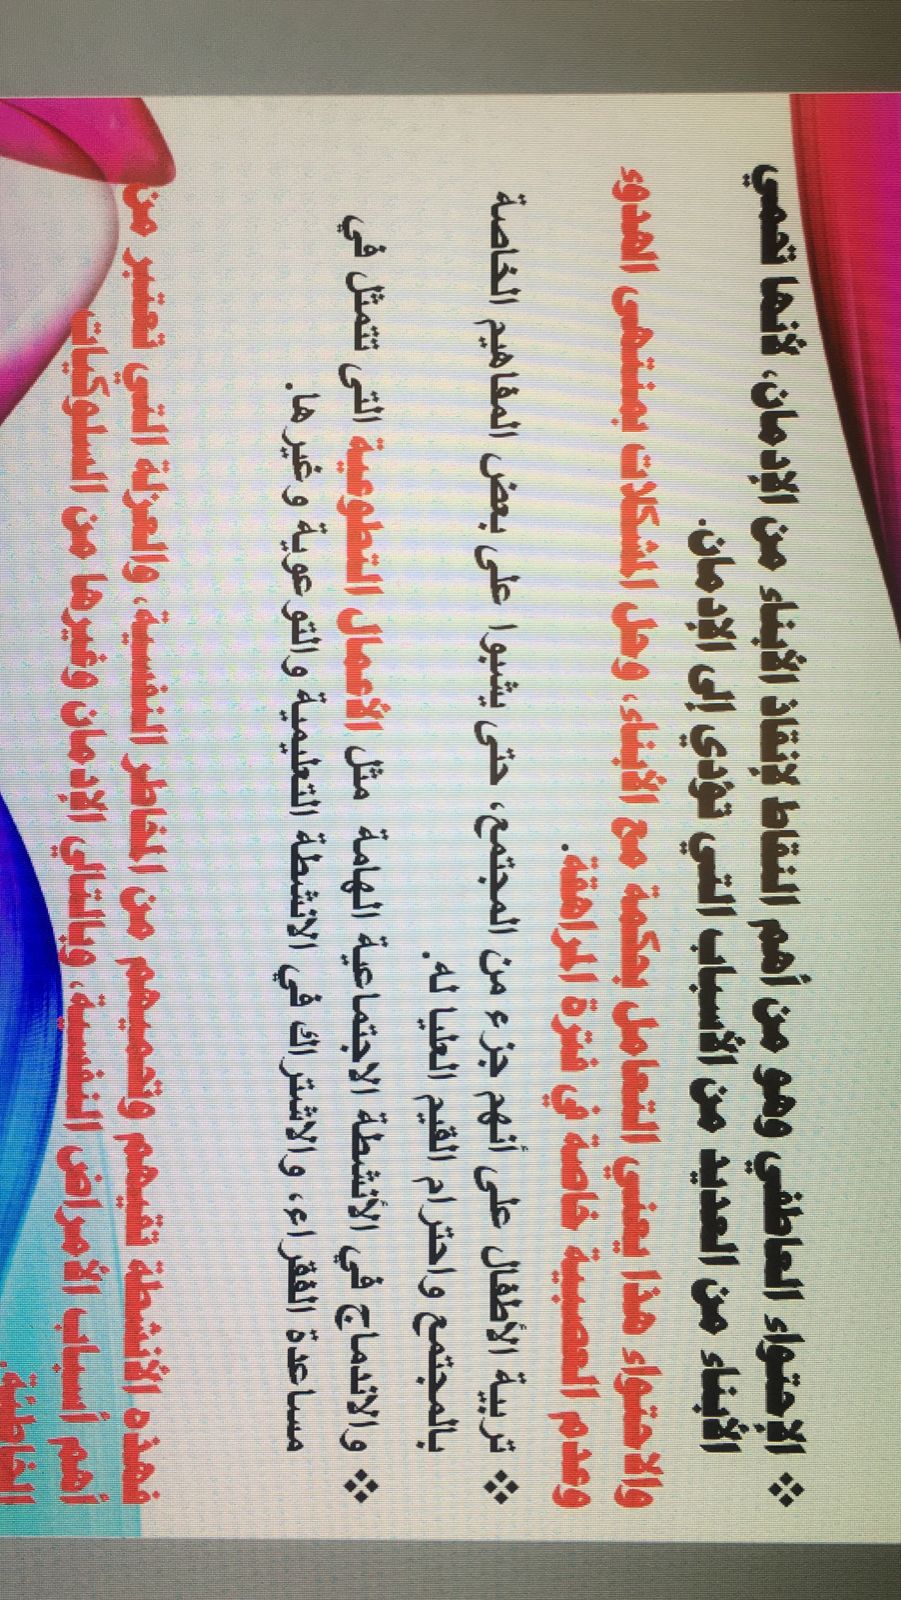 ❖ الإحتواء العاطفي وهو من أهم النقاط لإنقاذ الأبناء من الإدمان، لأنها تحمي
الأبناء من العديد من الأسباب التي تؤدي إلى الإدمان.
والاحتواء هذا يعني التعامل بحكمة مع الأبناء، وحل المشكلات بمنتهى الهدوء
وعدم العصبية خاصة في فترة المراهقة.
❖ تربية الأطفال على أنهم جزء من المجتمع، حتى يشبوا على بعض المفاهيم الخاصة
بالمجتمع واحترام القيم العليا له.
❖ والاندماج في الأنشطة الاجتماعية الهامة مثل الأعمال التطوعية التى تتمثل في
مساعدة الفقراء، والاشتراك في الانشطة التعليمية والتوعوية وغيرها.
فهذه الأنشطة تقيهم وتحميهم من المخاطر النفسية، والعزلة التي تعتبر من
أهم أسباب الأمراض النفسية، وبالتالي الإدمان وغيرها من السلوكيات
الخاطئة.